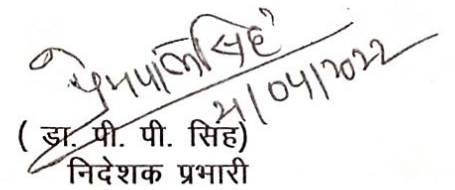 प्रेमपालसिंह
21/04/2022
( डा. पी. पी. सिंह)
निदेशक प्रभारी